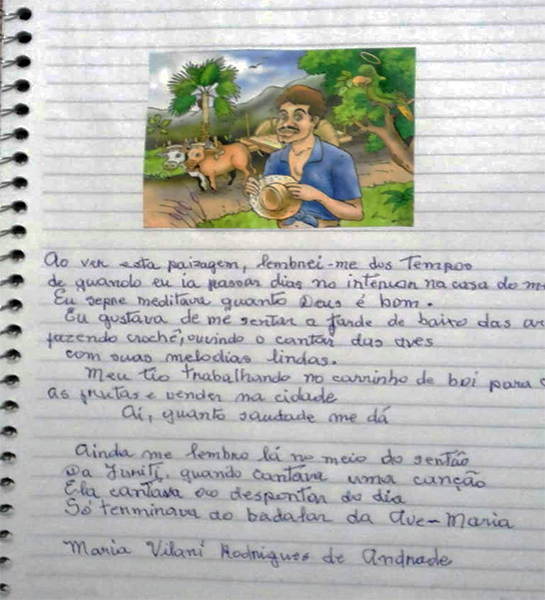 Ao ver esta paizagem, lembrei-me dos Tempos
de quando eu ia passar dias no interior na casa do
Eu sepre meditava quanto Deus é bom.
Eu gustava de me sentar a tarde de baixo das
fazendo crochê, ouvindo o cantar das aves
com suas melodias lindas.
Meu tio trabalhando no carrinho de boi para
as frutas e vender na cidade
Ai, quanto saudade me dá
Ainda me lembro lá no meio do sertão
Da Juriti, quando cantava uma canção
Ela cantava ao despontar do dia
Só terminava ao badalar da Ave-Maria
Maria Vilani Rodrigues de Andrade